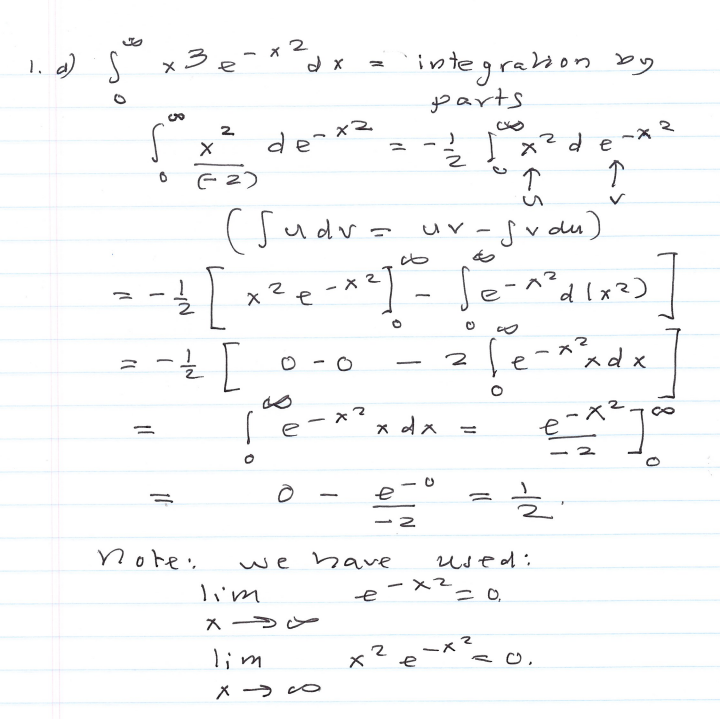 1. d) ∫₀^∞ x3 e^-x2 dx = integration by
parts
∫₀^∞ x²/(-2) de^-x2 = -1/2 ∫₀^∞ x² d e^-x²
↑ ↑
u v
(∫u dv = uv - ∫v du)
= -1/2 [ x² e^-x² ]₀^∞ - ∫₀^∞ e^-x² d(x²) ]
= -1/2 [ 0 - 0 - 2 ∫₀^∞ e^-x² x dx ]
= ∫₀^∞ e^-x² x dx = e^-x²/-2 ]₀^∞
= 0 - e^-0/-2 = 1/2.
Note: we have used:
lim e^-x2 = 0.
x → ∞
lim x² e^-x² = 0.
x → ∞